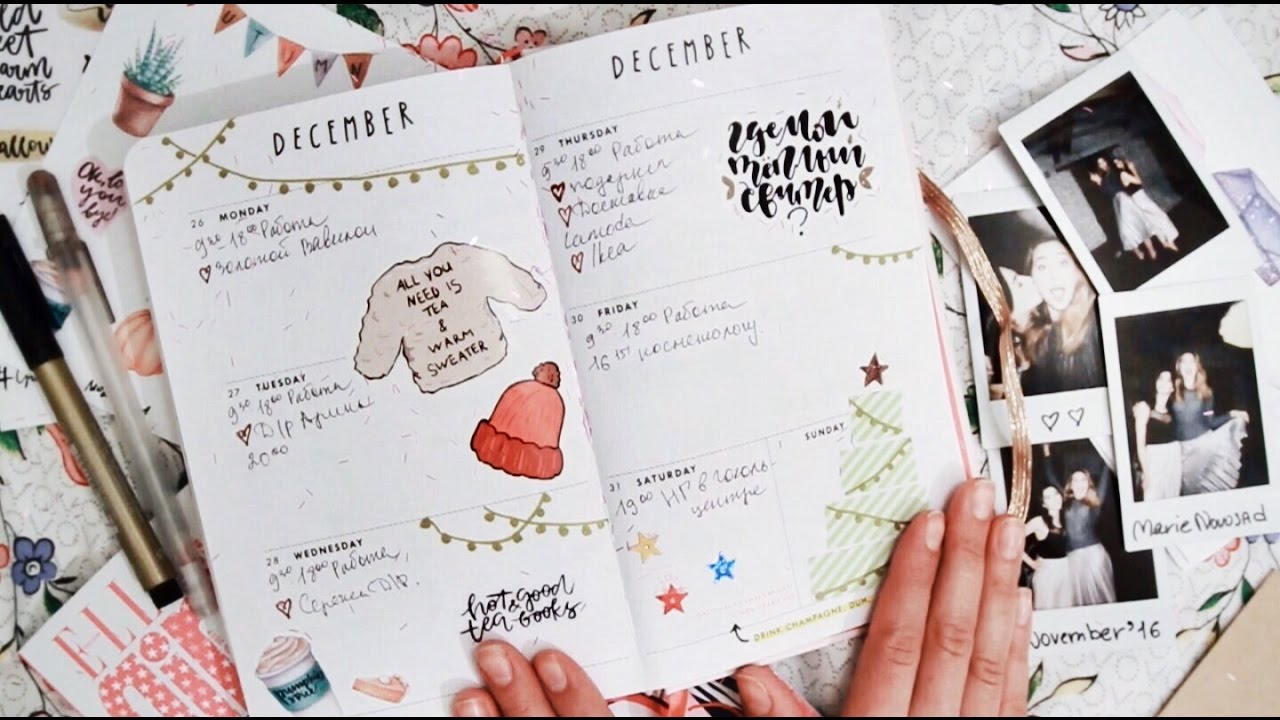 DECEMBER
26 MONDAY
9³⁰ 18⁰⁰ Работа
Золотой Вавилон
ALL YOU
NEED IS
TEA
&
WARM
SWEATER
27 TUESDAY
9³⁰ 18⁰⁰ Работа
D|P Арины
20⁰⁰
28 WEDNESDAY
9³⁰ 18⁰⁰ Работа
Сережи D|P.
hot & good
tea books
DECEMBER
29 THURSDAY
9³⁰ 18⁰⁰ Работа
подарки
Доставка
Lamoda
Ikea
где мой
тёплый
свитер
?
30 FRIDAY
9³⁰ 18⁰⁰ Работа
16¹⁵ косметолог
31 SATURDAY
19⁰⁰ НГ в гоголь
центре
1 SUNDAY
DRINK CHAMPAGNE,
Marie Novosad
November'16